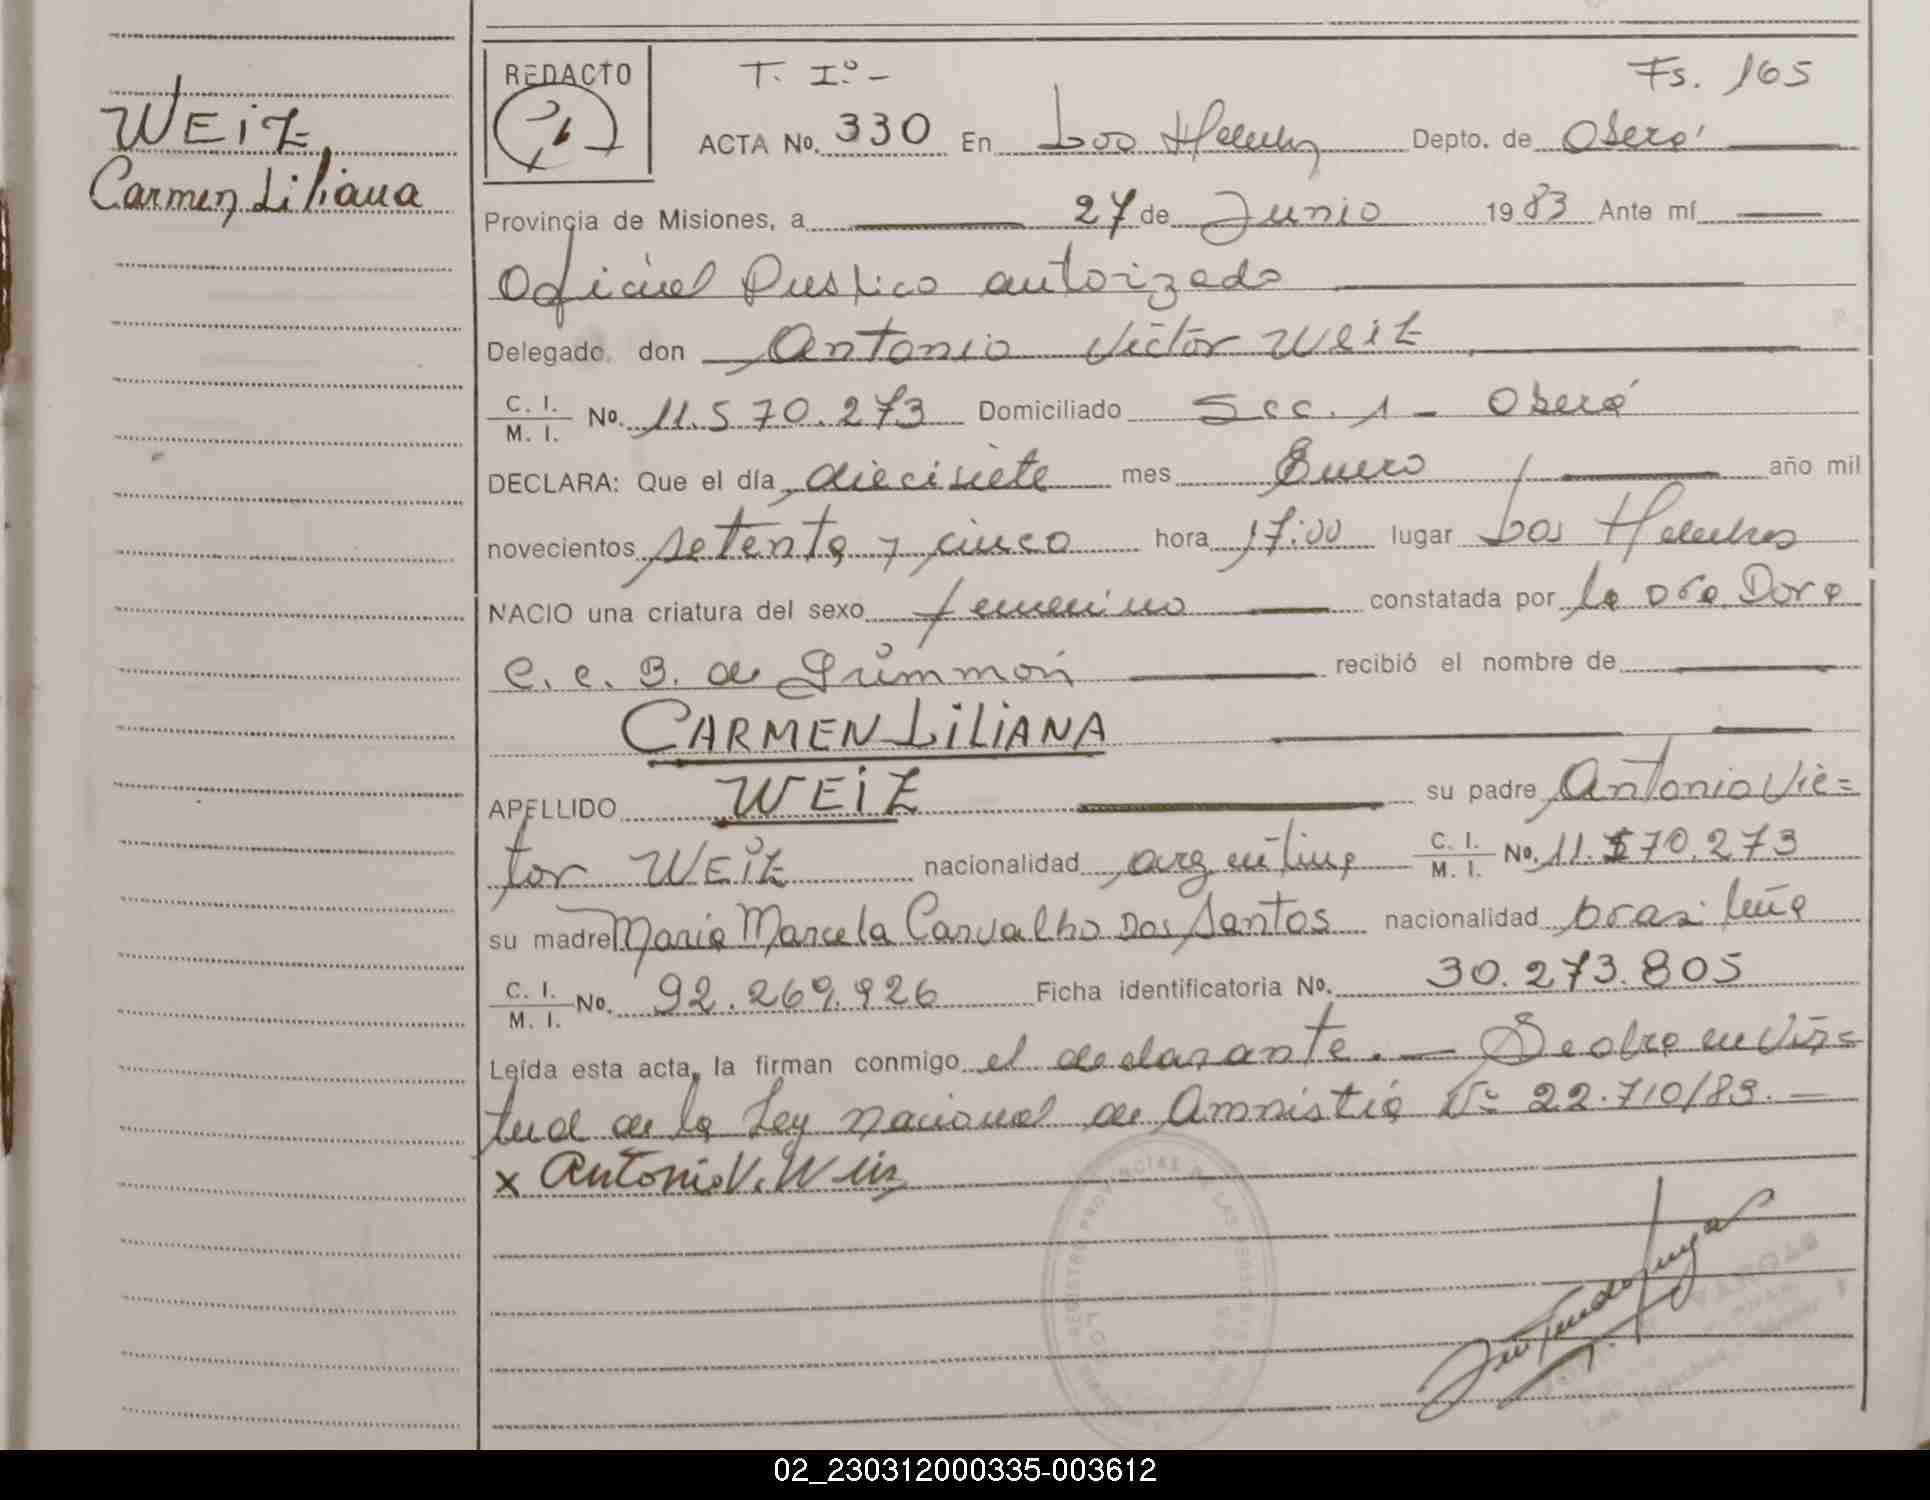 WEIZ
Carmen Liliana
REDACTO
T. Iº -
Fs. 165
ACTA No. 330 En Los Helechos Depto. de Oberá
Provincia de Misiones, a 27 de Junio 1983 Ante mí
Oficial Publico autorizado
Delegado don Antonio Victor Weiz
C. I. / M. I. No. 11.570.273 Domiciliado Secc. 1 - Oberá
DECLARA: Que el día diecisiete mes Enero año mil
novecientos setenta y cinco hora 17:00 lugar Los Helechos
NACIO una criatura del sexo femenino constatada por la Dra Dora
C. e. B. de Grimmon recibió el nombre de
CARMEN LILIANA
APELLIDO WEIZ su padre Antonio Víc=
tor WEIZ nacionalidad argentina C. I. / M. I. No. 11.570.273
su madre Maria Marcela Carvalho Dos Santos nacionalidad brasileña
C. I. / M. I. No. 92.269.926 Ficha identificatoria No. 30.273.805
Leída esta acta, la firman conmigo el declarante. — Se labra en vir=
tud de la Ley nacional de Amnistía Nº 22.710/83. —
x Antonio V. Weiz
REGISTRO PROVINCIAL DE LAS PERSONAS
VARGAS
02_230312000335-003612